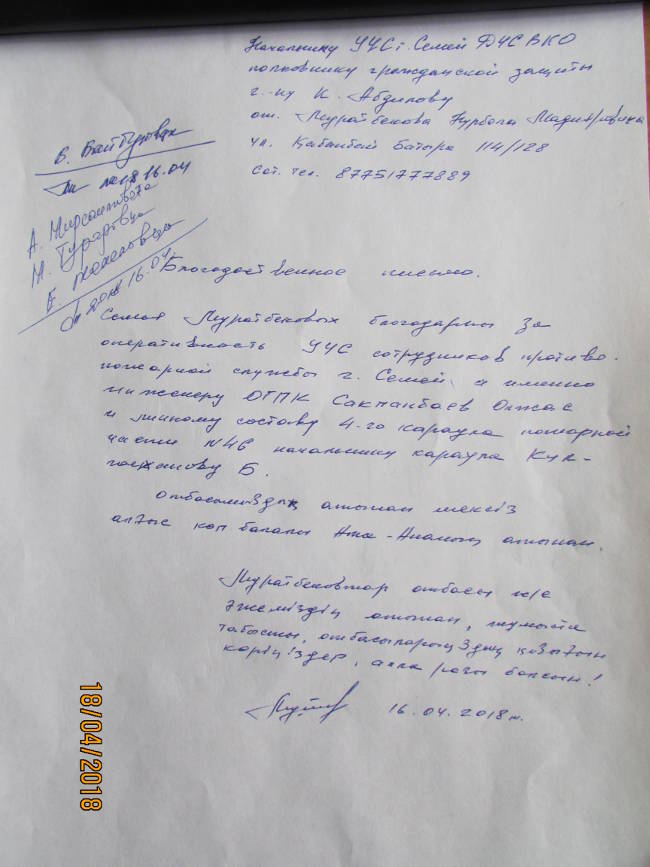 Начальнику УЧС г. Семей ДЧС ВКО
полковнику гражданской защиты
г-ну К. Абдилову
от. Муратбекова Нурбола
ул. Кабанбай батыра 114/128
Сот. тел. 87751777889
Б.
16.04
А.
М.
Е.
16.04
Благодарственное письмо.
Семья Муратбековых благодарны за
оперативность УЧС сотрудников противо-
пожарной службы г. Семей, а именно
инженеру ОГПК Сакпанбаев Олжас
и личному составу 4-го караула пожарной
части №46 начальнику караула Кук-
Б.
Отбасымыздың атынан шексіз
алғыс көп балалы Ата-Ананың атынан.
Муратбековтар отбасы және
әжеміздің атынан, жумыста
табысты, отбасыларыңыздың қызығын
көріңіздер, алла разы болсын!
16.04.2018 ж.
18/04/2018